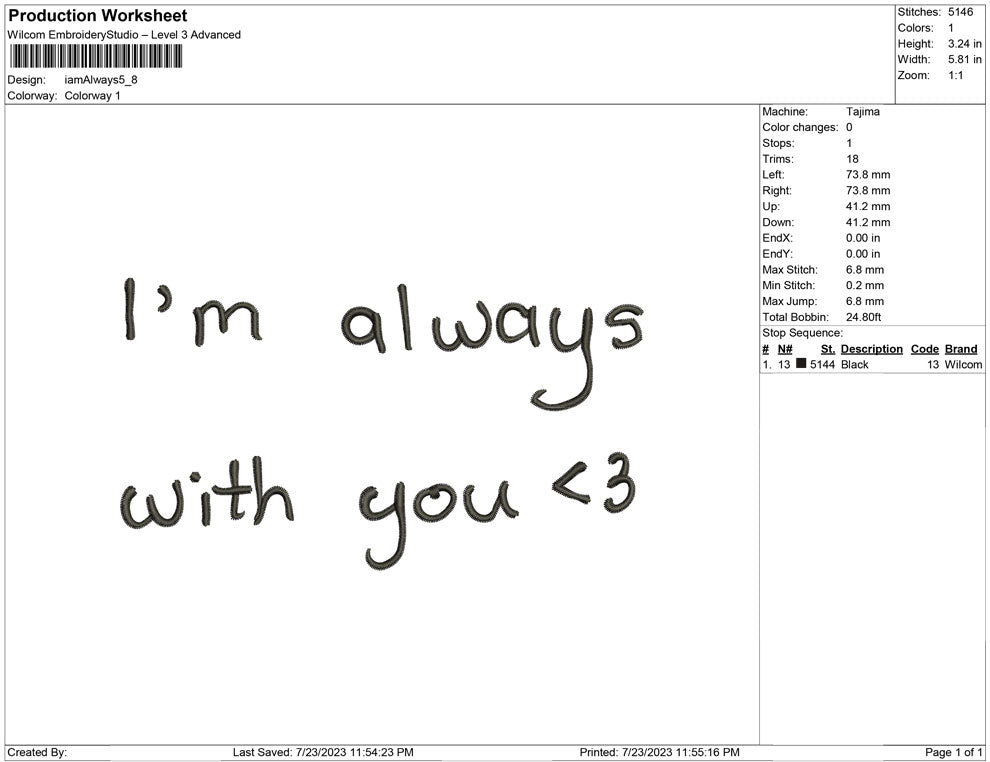 Production Worksheet
Wilcom EmbroideryStudio – Level 3 Advanced
Design: iamAlways5_8
Colorway: Colorway 1
Stitches: 5146
Colors: 1
Height: 3.24 in
Width: 5.81 in
Zoom: 1:1
I'm always
with you <3
Machine: Tajima
Color changes: 0
Stops: 1
Trims: 18
Left: 73.8 mm
Right: 73.8 mm
Up: 41.2 mm
Down: 41.2 mm
EndX: 0.00 in
EndY: 0.00 in
Max Stitch: 6.8 mm
Min Stitch: 0.2 mm
Max Jump: 6.8 mm
Total Bobbin: 24.80ft
Stop Sequence:
# N# St. Description Code Brand
1. 13 5144 Black 13 Wilcom
Created By: Last Saved: 7/23/2023 11:54:23 PM Printed: 7/23/2023 11:55:16 PM Page 1 of 1